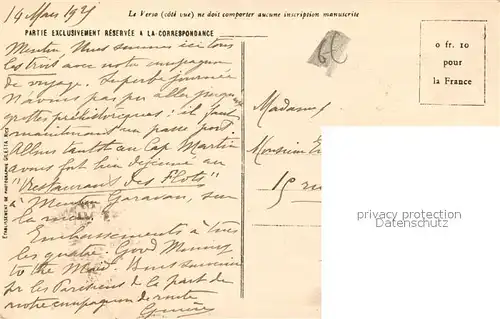 14 Mars 1921
Le Verso (côté vue) ne doit comporter aucune inscription manuscrite
PARTIE EXCLUSIVEMENT RÉSERVÉE A LA CORRESPONDANCE
0 fr. 10
pour
la France
Menton. Nous sommes ici tous
les trois avec notre compagnon
de voyage. Superbe journée
N'avons pas pu aller jusqu'aux
grottes préhistoriques : il faut
maintenant un passe port.
Allons tantôt au Cap Martin
avons fort bien déjeuné au
"Restaurant des Flots"
à Menton Garavan, sur
la
Embrassements à tous
les quatre. Good Morning
to the Maid. Bons souvenirs
pr les Parisiens de la part de
notre compagnon de route
Madame
Monsieur
15
ÉTABLISSEMENT DE PHOTOGRAPHIE GILETTA NICE
copyright
privacy protection
watermark